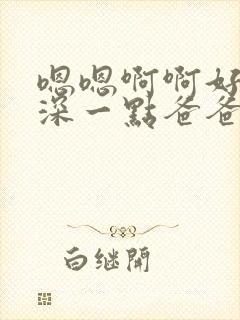 嗯嗯啊啊好
深一點爸爸
白继開